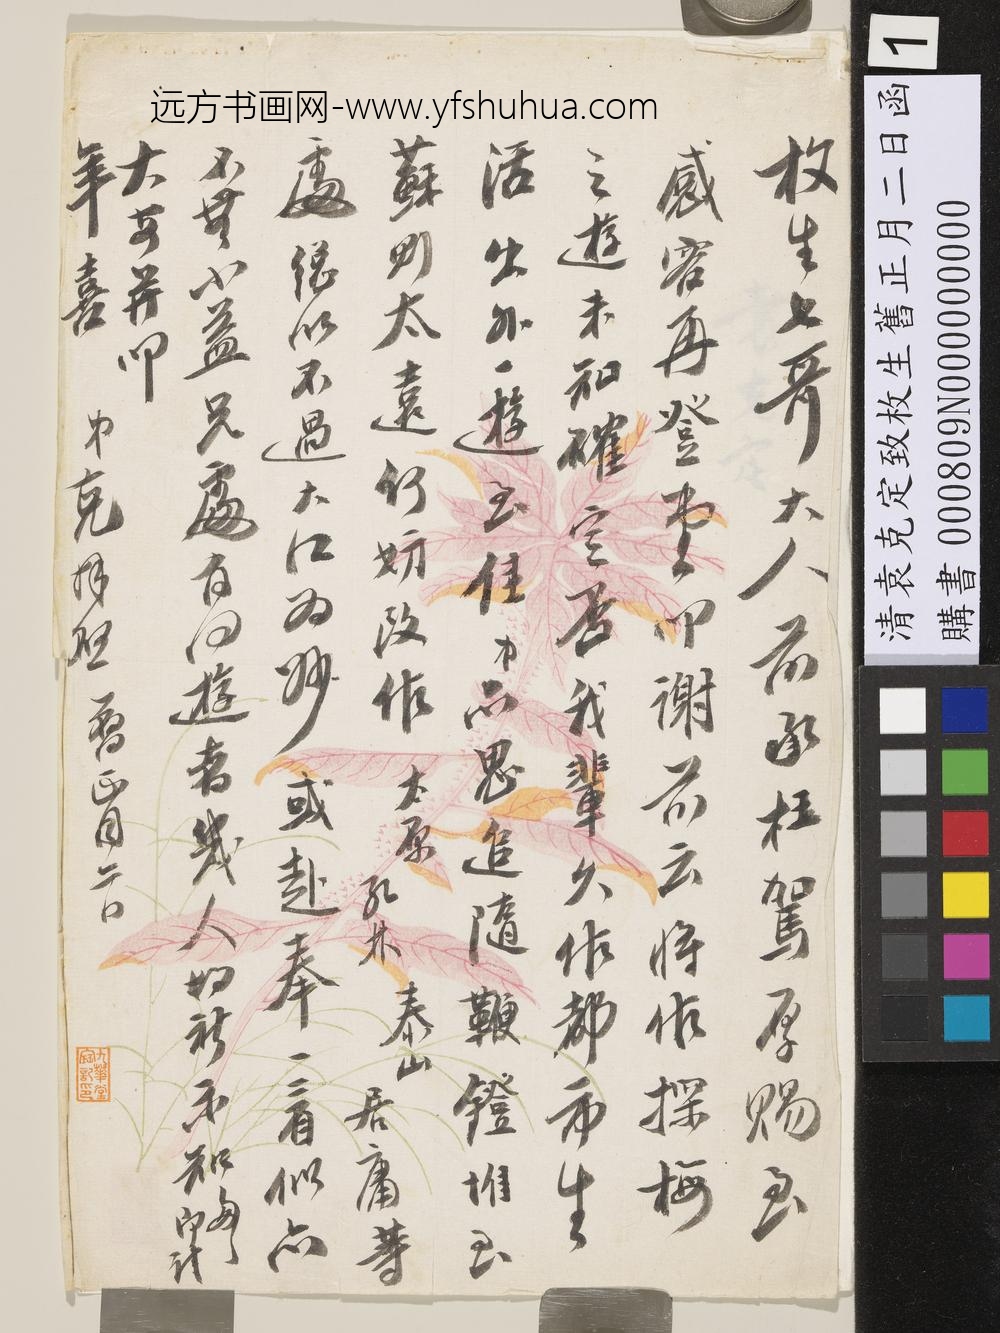 远方书画网-www.yfshuhua.com
1
清袁克定致枚生舊正月二日函
購書 000809N000000000
枚生七哥大人前承枉駕厚賜至
感容再登堂叩謝前云將作探梅
之遊未知確定否我輩久作都市生
活出外一遊至佳弟亦思追隨鞭鐙惟至
蘇則太遠何妨改作太原孔林泰山居庸等
處總以不過大江為妙或赴奉一看似亦
不無小益兄處有同遊者幾人如祈示知
大安并叩
年喜
弟克拜啟 舊正月二日